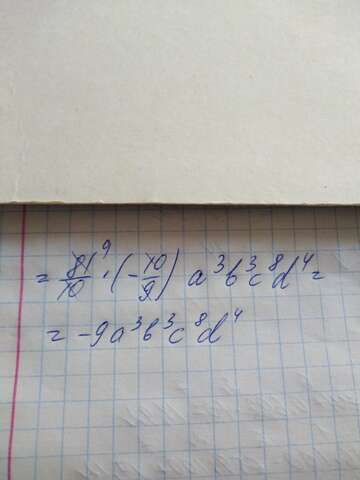 = 81⁹/10 · (-10/9) a³b³c⁸d⁴ =
= -9a³b³c⁸d⁴